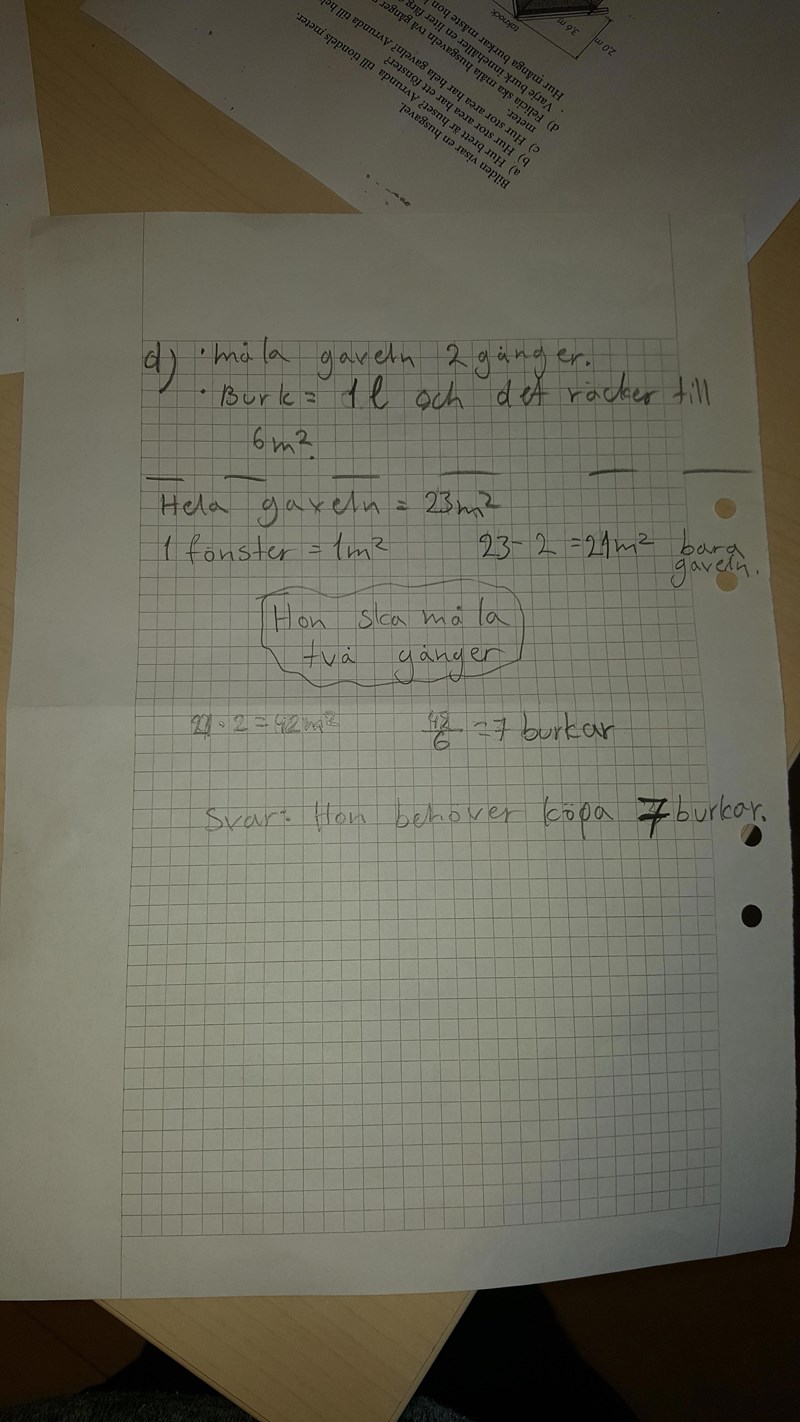 2,0 m
3,6 m
Bilden visar en husgavel.
a) Hur brett är huset? Avrunda till tiondels meter.
b) Hur stor area har ett fönster?
c) Hur stor area har hela gaveln? Avrunda till
meter.
d) Felicia ska måla husgaveln två gånger
Varje burk innehåller en liter färg
Hur många burkar måste hon
d) · måla gaveln 2 gånger.
· Burk = 1l och det räcker till
6m².
Hela gaveln = 23m²
1 fönster = 1m² 23-2=21m² bara
gaveln.
Hon ska måla
två gånger
21·2=42m² 42/6 =7 burkar
Svar: Hon behöver köpa 7 burkar.